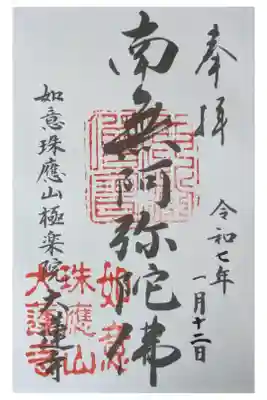 奉拝
令和七年
一月十二日
南無阿弥陀佛
如意珠應山極楽院
大蓮寺
如意
珠應山
大蓮寺